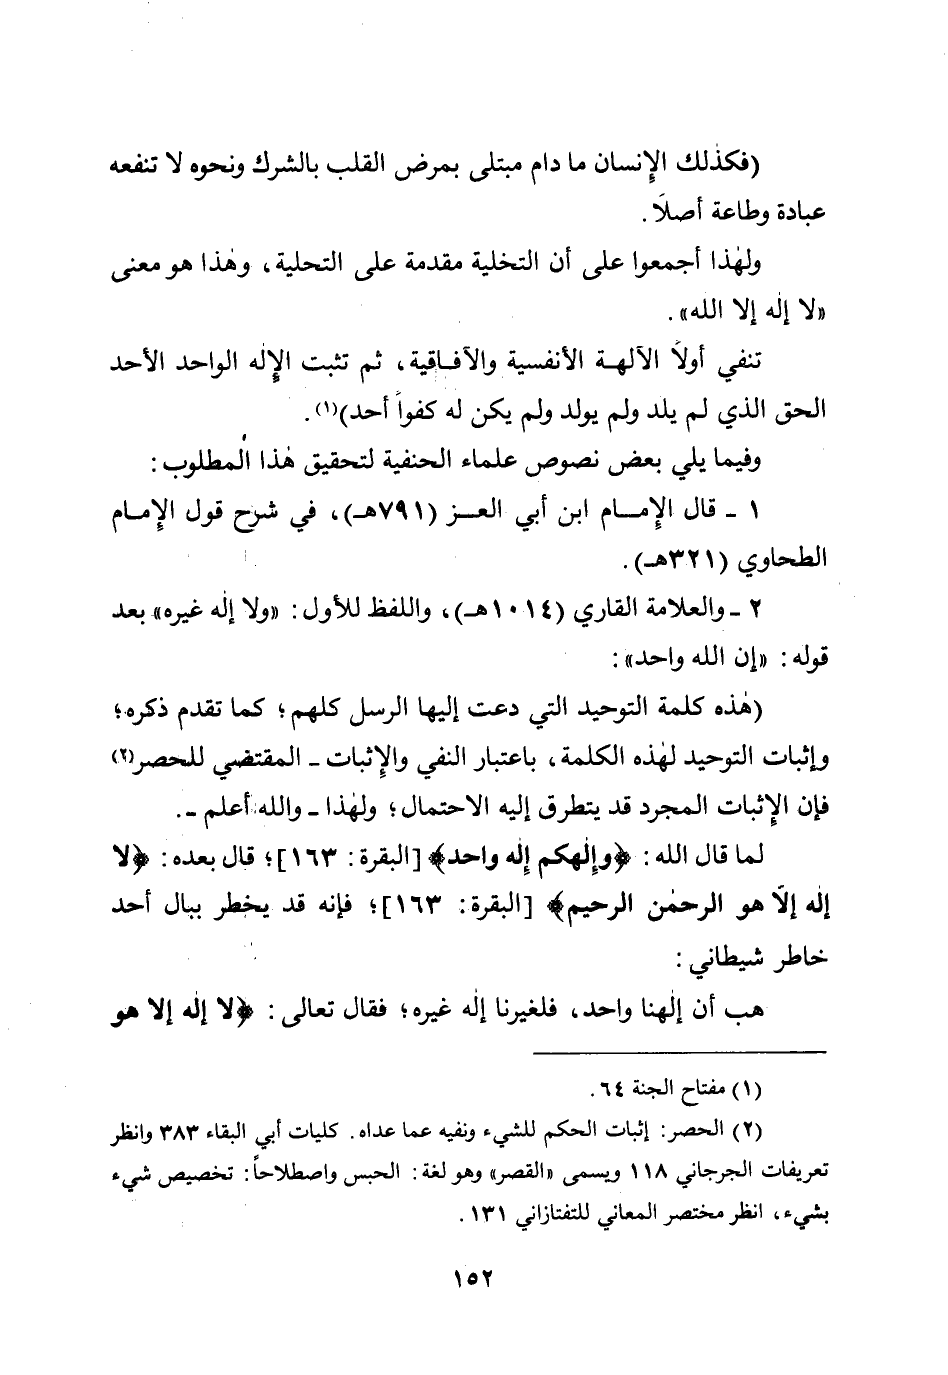 (فكذلك الإنسان ما دام مبتلى بمرض القلب بالشرك ونحوه لا تنفعه
عبادة وطاعة أصلاً.
ولهٰذا أجمعوا على أن التخلية مقدمة على التحلية، وهٰذا هو معنى
«لا إلٰه إلا الله».
تنفي أولاً الآلهة الأنفسية والآفاقية، ثم تثبت الإلٰه الواحد الأحد
الحق الذي لم يلد ولم يولد ولم يكن له كفواً أحد)(١).
وفيما يلي بعض نصوص علماء الحنفية لتحقيق هٰذا المطلوب:
١ ـ قال الإمام ابن أبي العز (٧٩١هـ)، في شرح قول الإمام
الطحاوي (٣٢١هـ).
٢ ـ والعلامة القاري (١٠١٤هـ)، واللفظ للأول: «ولا إلٰه غيره» بعد
قوله: «إن الله واحد»:
(هٰذه كلمة التوحيد التي دعت إليها الرسل كلهم؛ كما تقدم ذكره؛
وإثبات التوحيد لهٰذه الكلمة، باعتبار النفي والإثبات ـ المقتضي للحصر(٢)
فإن الإثبات المجرد قد يتطرق إليه الاحتمال؛ ولهٰذا ـ والله أعلم ـ.
لما قال الله: ﴿وإلٰهكم إلٰه واحد﴾ [البقرة: ١٦٣]؛ قال بعده: ﴿لا
إلٰه إلّا هو الرحمٰن الرحيم﴾ [البقرة: ١٦٣]؛ فإنه قد يخطر ببال أحد
خاطر شيطاني:
هب أن إلٰهنا واحد، فلغيرنا إلٰه غيره؛ فقال تعالى: ﴿لا إلٰه إلا هو
(١) مفتاح الجنة ٦٤.
(٢) الحصر: إثبات الحكم للشيء ونفيه عما عداه. كليات أبي البقاء ٣٨٣ وانظر
تعريفات الجرجاني ١١٨ ويسمى «القصر» وهو لغة: الحبس واصطلاحاً: تخصيص شيء
بشيء، انظر مختصر المعاني للتفتازاني ١٣١.
١٥٢